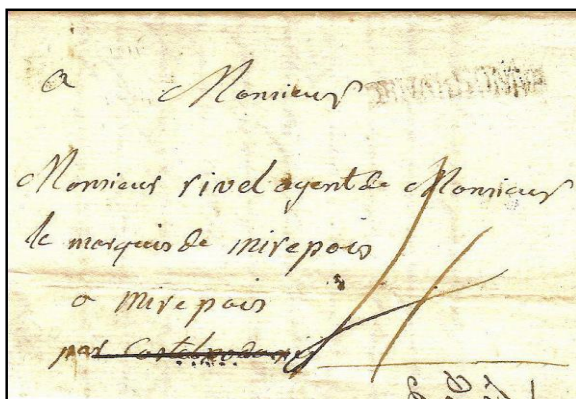 a Monsieur
Monsieur rivel agent de Monsieur
le marquis de mirepois
a mirepois
par Castelnodarij